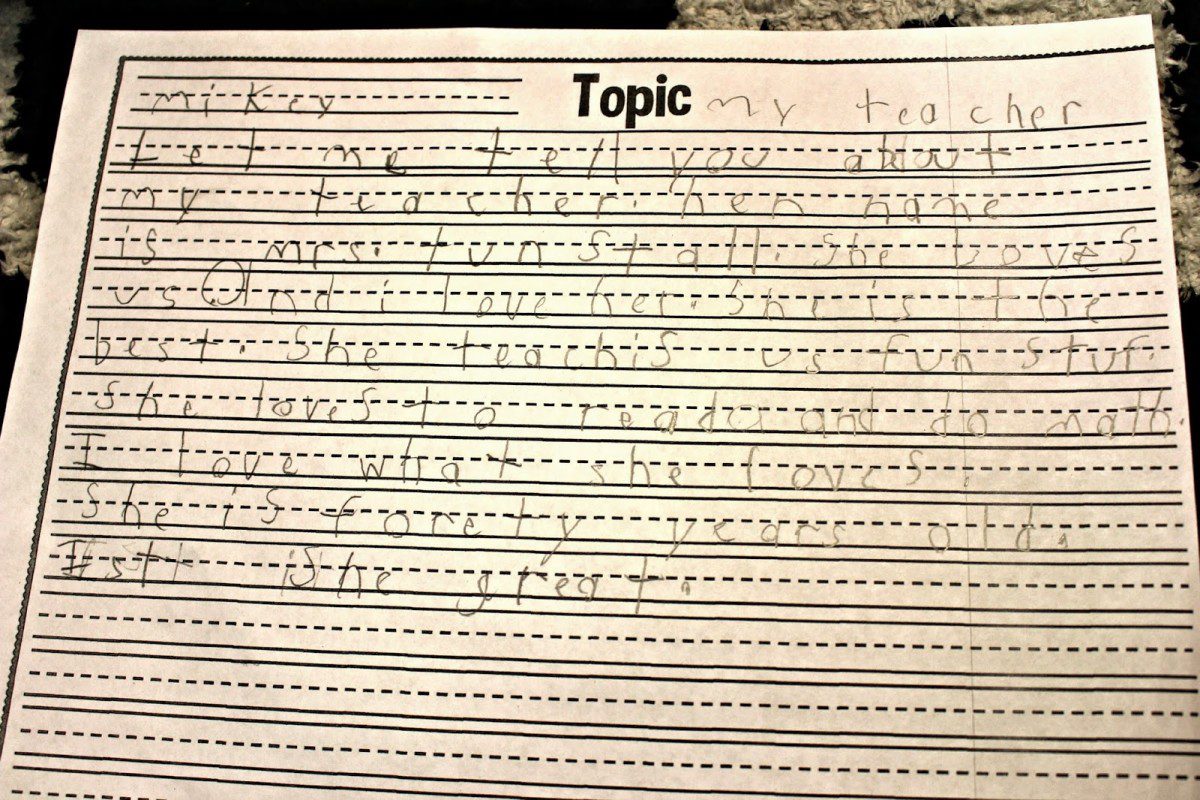 mikey Topic my teacher
Let me tell you about
my teacher. her name
is mrs. tunstall. She loves
us And i love her. She is the
best. She teachis us fun stuf.
She loves to read and do math.
I love what she loves.
She is forety years old.
is she great.